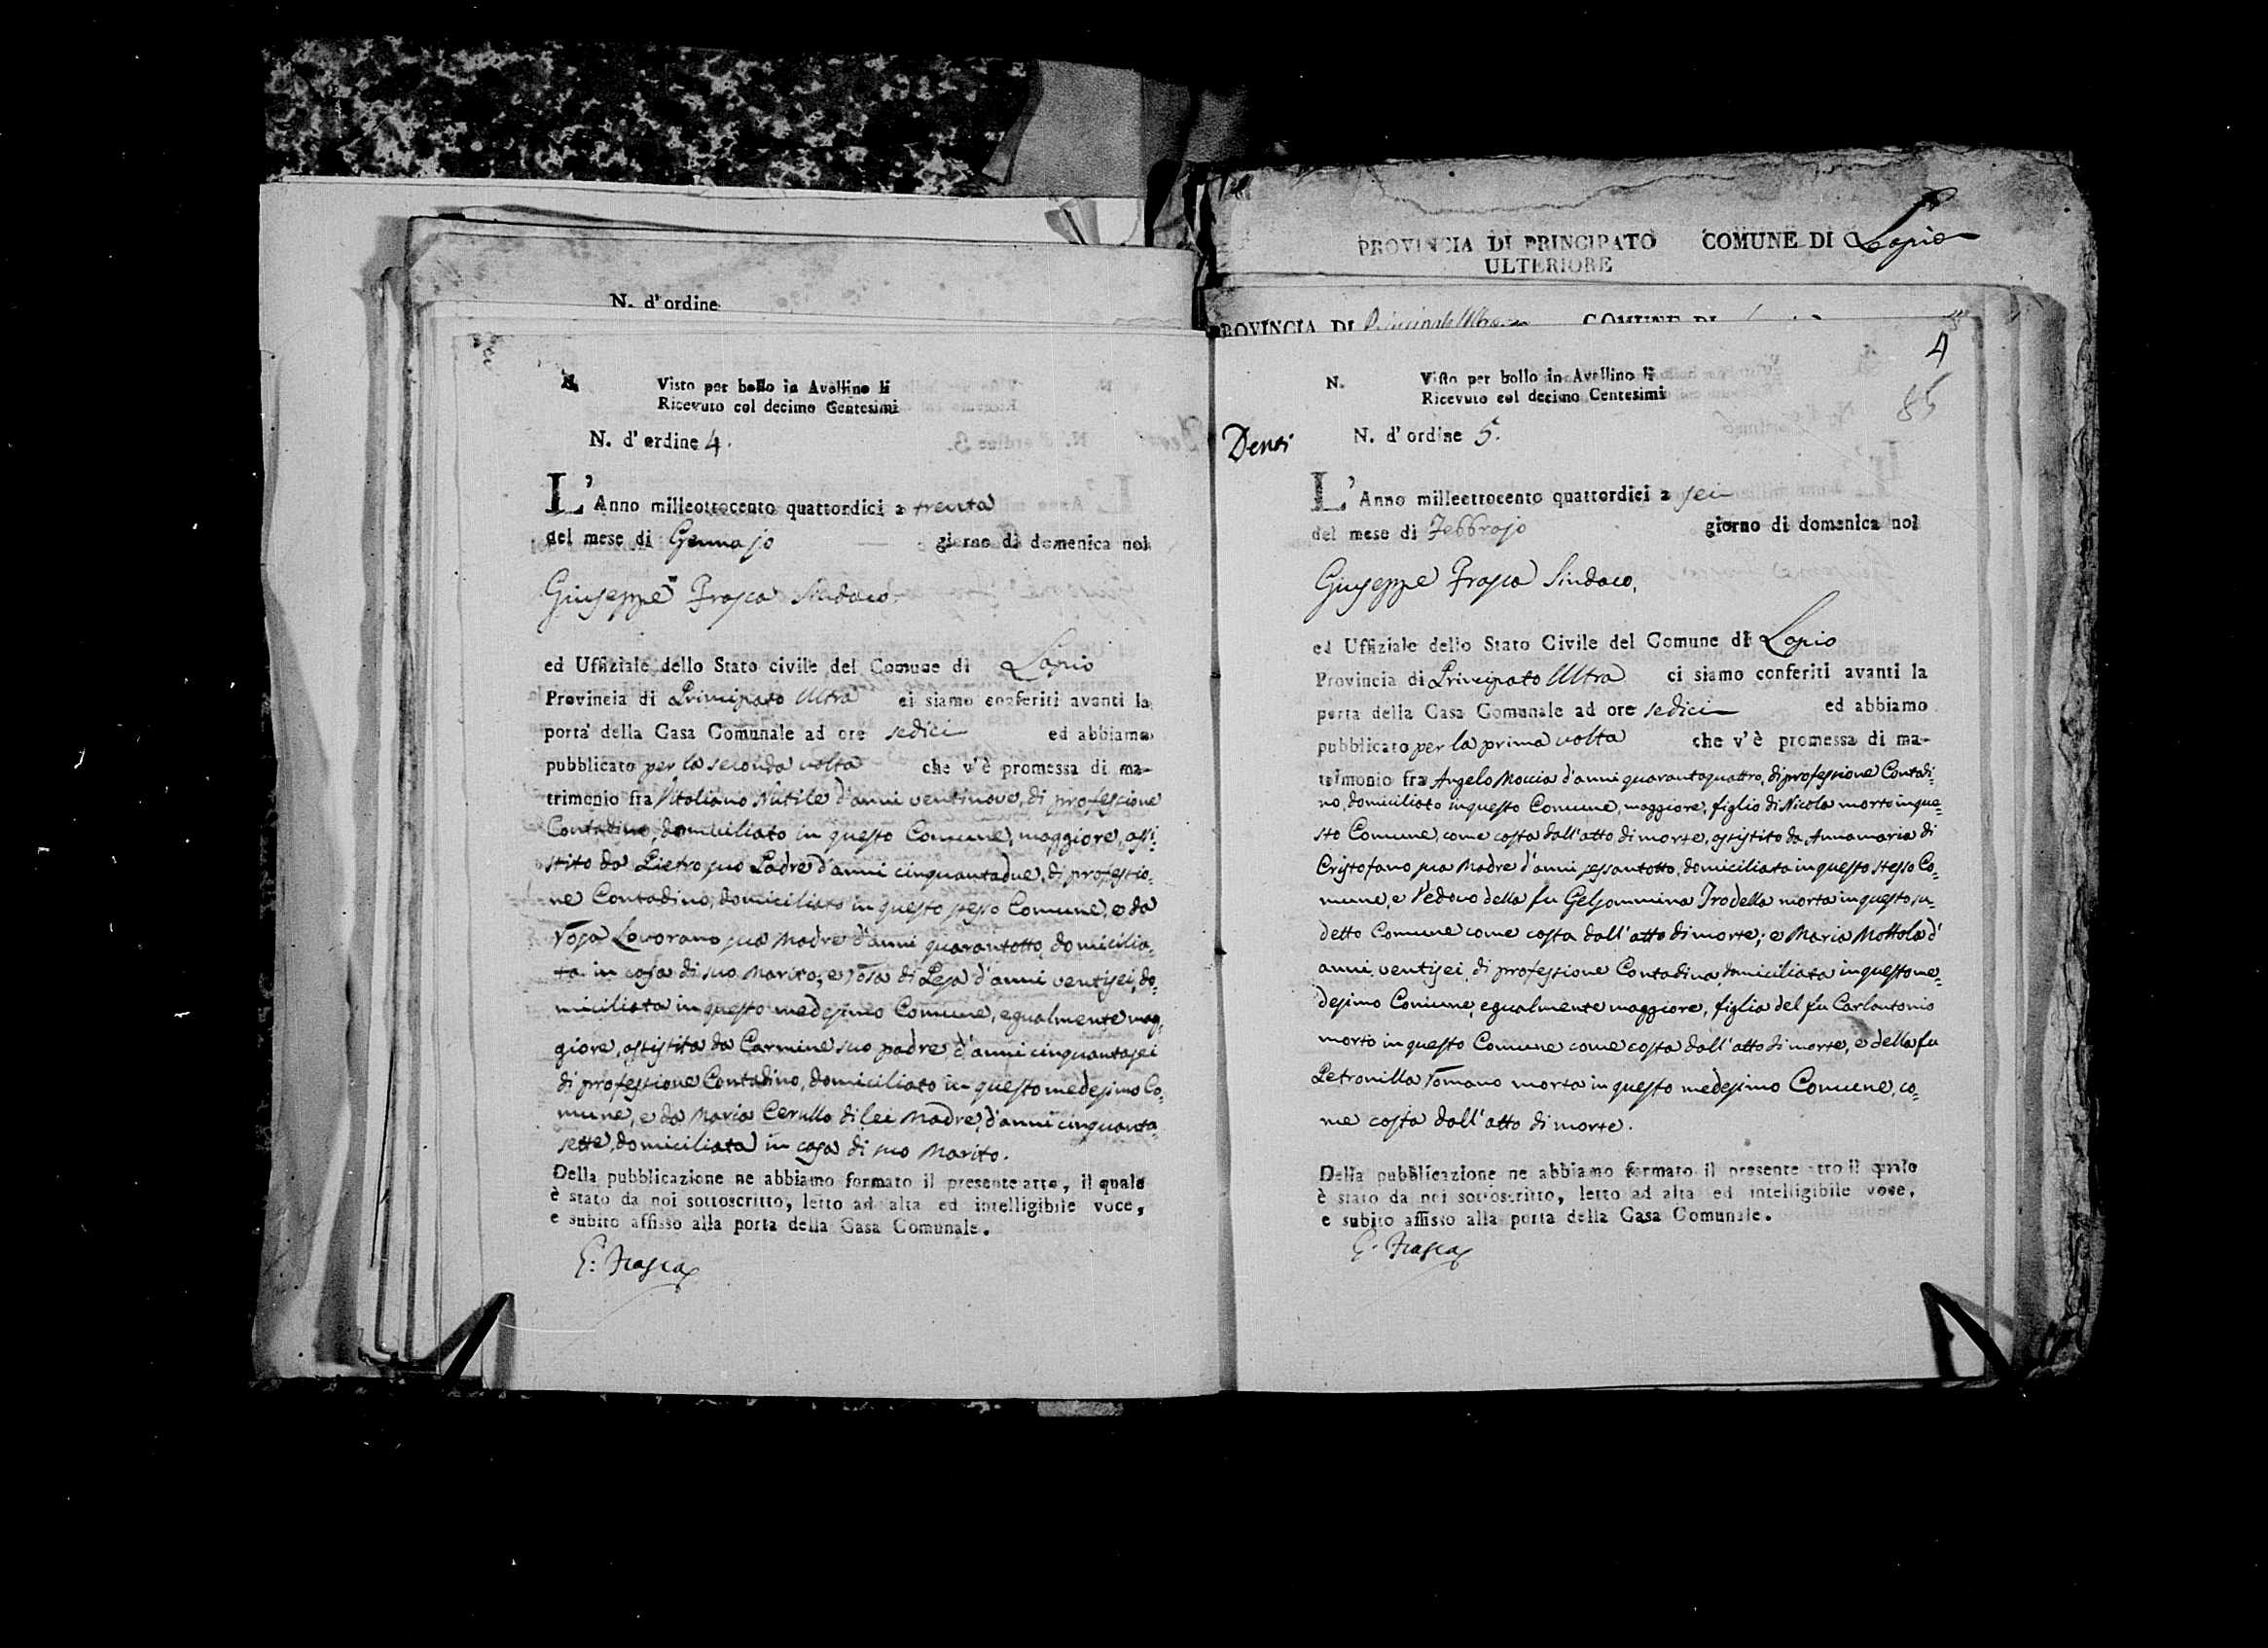 N. d' ordine
N. Visto per bollo in Avellino li
Ricevuto col decimo Centesimi
N. d' ordine 4.
L' Anno milleottocento quattordici a trenta
del mese di Gennajo giorno di domenica noi
Giuseppe Frasca Sindaco
ed Uffiziale dello Stato civile del Comune di Lapio
Provincia di Principato Ultra ci siamo conferiti avanti la
porta della Casa Comunale ad ore sedici ed abbiamo
pubblicato per la seconda volta che v'è promessa di ma-
trimonio fra Vitoliano Nutile d'anni ventinove, di professione
Contadino, domiciliato in questo Comune, maggiore, assi-
stito da Pietro suo Padre d'anni cinquantadue, di professio-
ne Contadino, domiciliato in questo stesso Comune, e da
Rosa Lovorano sua Madre d'anni quarantotto, domicilia-
ta in casa di suo Marito; e Rosa di Pesa d'anni ventisei, do-
miciliata in questo medesimo Comune, egualmente mag-
giore, assistita da Carmine suo padre d'anni cinquantasei
di professione Contadino, domiciliato in questo medesimo Co-
mune, e da Maria Cerullo di lei Madre, d'anni cinquanta-
sette, domiciliata in casa di suo Marito.
Della pubblicazione ne abbiamo formato il presente atto, il quale
è stato da noi sottoscritto, letto ad alta ed intelligibile voce,
e subito affisso alla porta della Casa Comunale.
G: Frasca
PROVINCIA DI PRINCIPATO COMUNE DI Lapio
ULTERIORE
PROVINCIA DI COMUNE DI
4
85
N. Visto per bollo in Avellino li
Ricevuto col decimo Centesimi
N. d' ordine 5.
L' Anno milleottocento quattordici a sei
del mese di Febbrajo giorno di domenica noi
Giuseppe Frasca Sindaco,
ed Uffiziale dello Stato Civile del Comune di Lapio
Provincia di Principato Ultra ci siamo conferiti avanti la
porta della Casa Comunale ad ore sedici ed abbiamo
pubblicato per la prima volta che v'è promessa di ma-
trimonio fra Angelo Moccia d'anni quarantaquattro, di professione Contadi-
no, domiciliato in questo Comune, maggiore, figlio di Nicola morto in que-
sto Comune, come costa dall'atto di morte, assistito da Annamaria di
Cristofano sua Madre d'anni sessantotto, domiciliata in questo stesso Co-
mune, e Vedovo della fu Gelsommina Trodella morta in questo su-
detto Comune come costa dall'atto di morte; e Maria Mottola d'
anni ventisei, di professione Contadina, domiciliata in questo me-
desimo Comune, egualmente maggiore, figlia del fu Carlantonio
morto in questo Comune come costa dall'atto di morte, e della fu
Petronilla Romano morta in questo medesimo Comune, co-
me costa dall'atto di morte.
Della pubblicazione ne abbiamo formato il presente atto il quale
è stato da noi sottoscritto, letto ad alta ed intelligibile voce,
e subito affisso alla porta della Casa Comunale.
G. Frasca